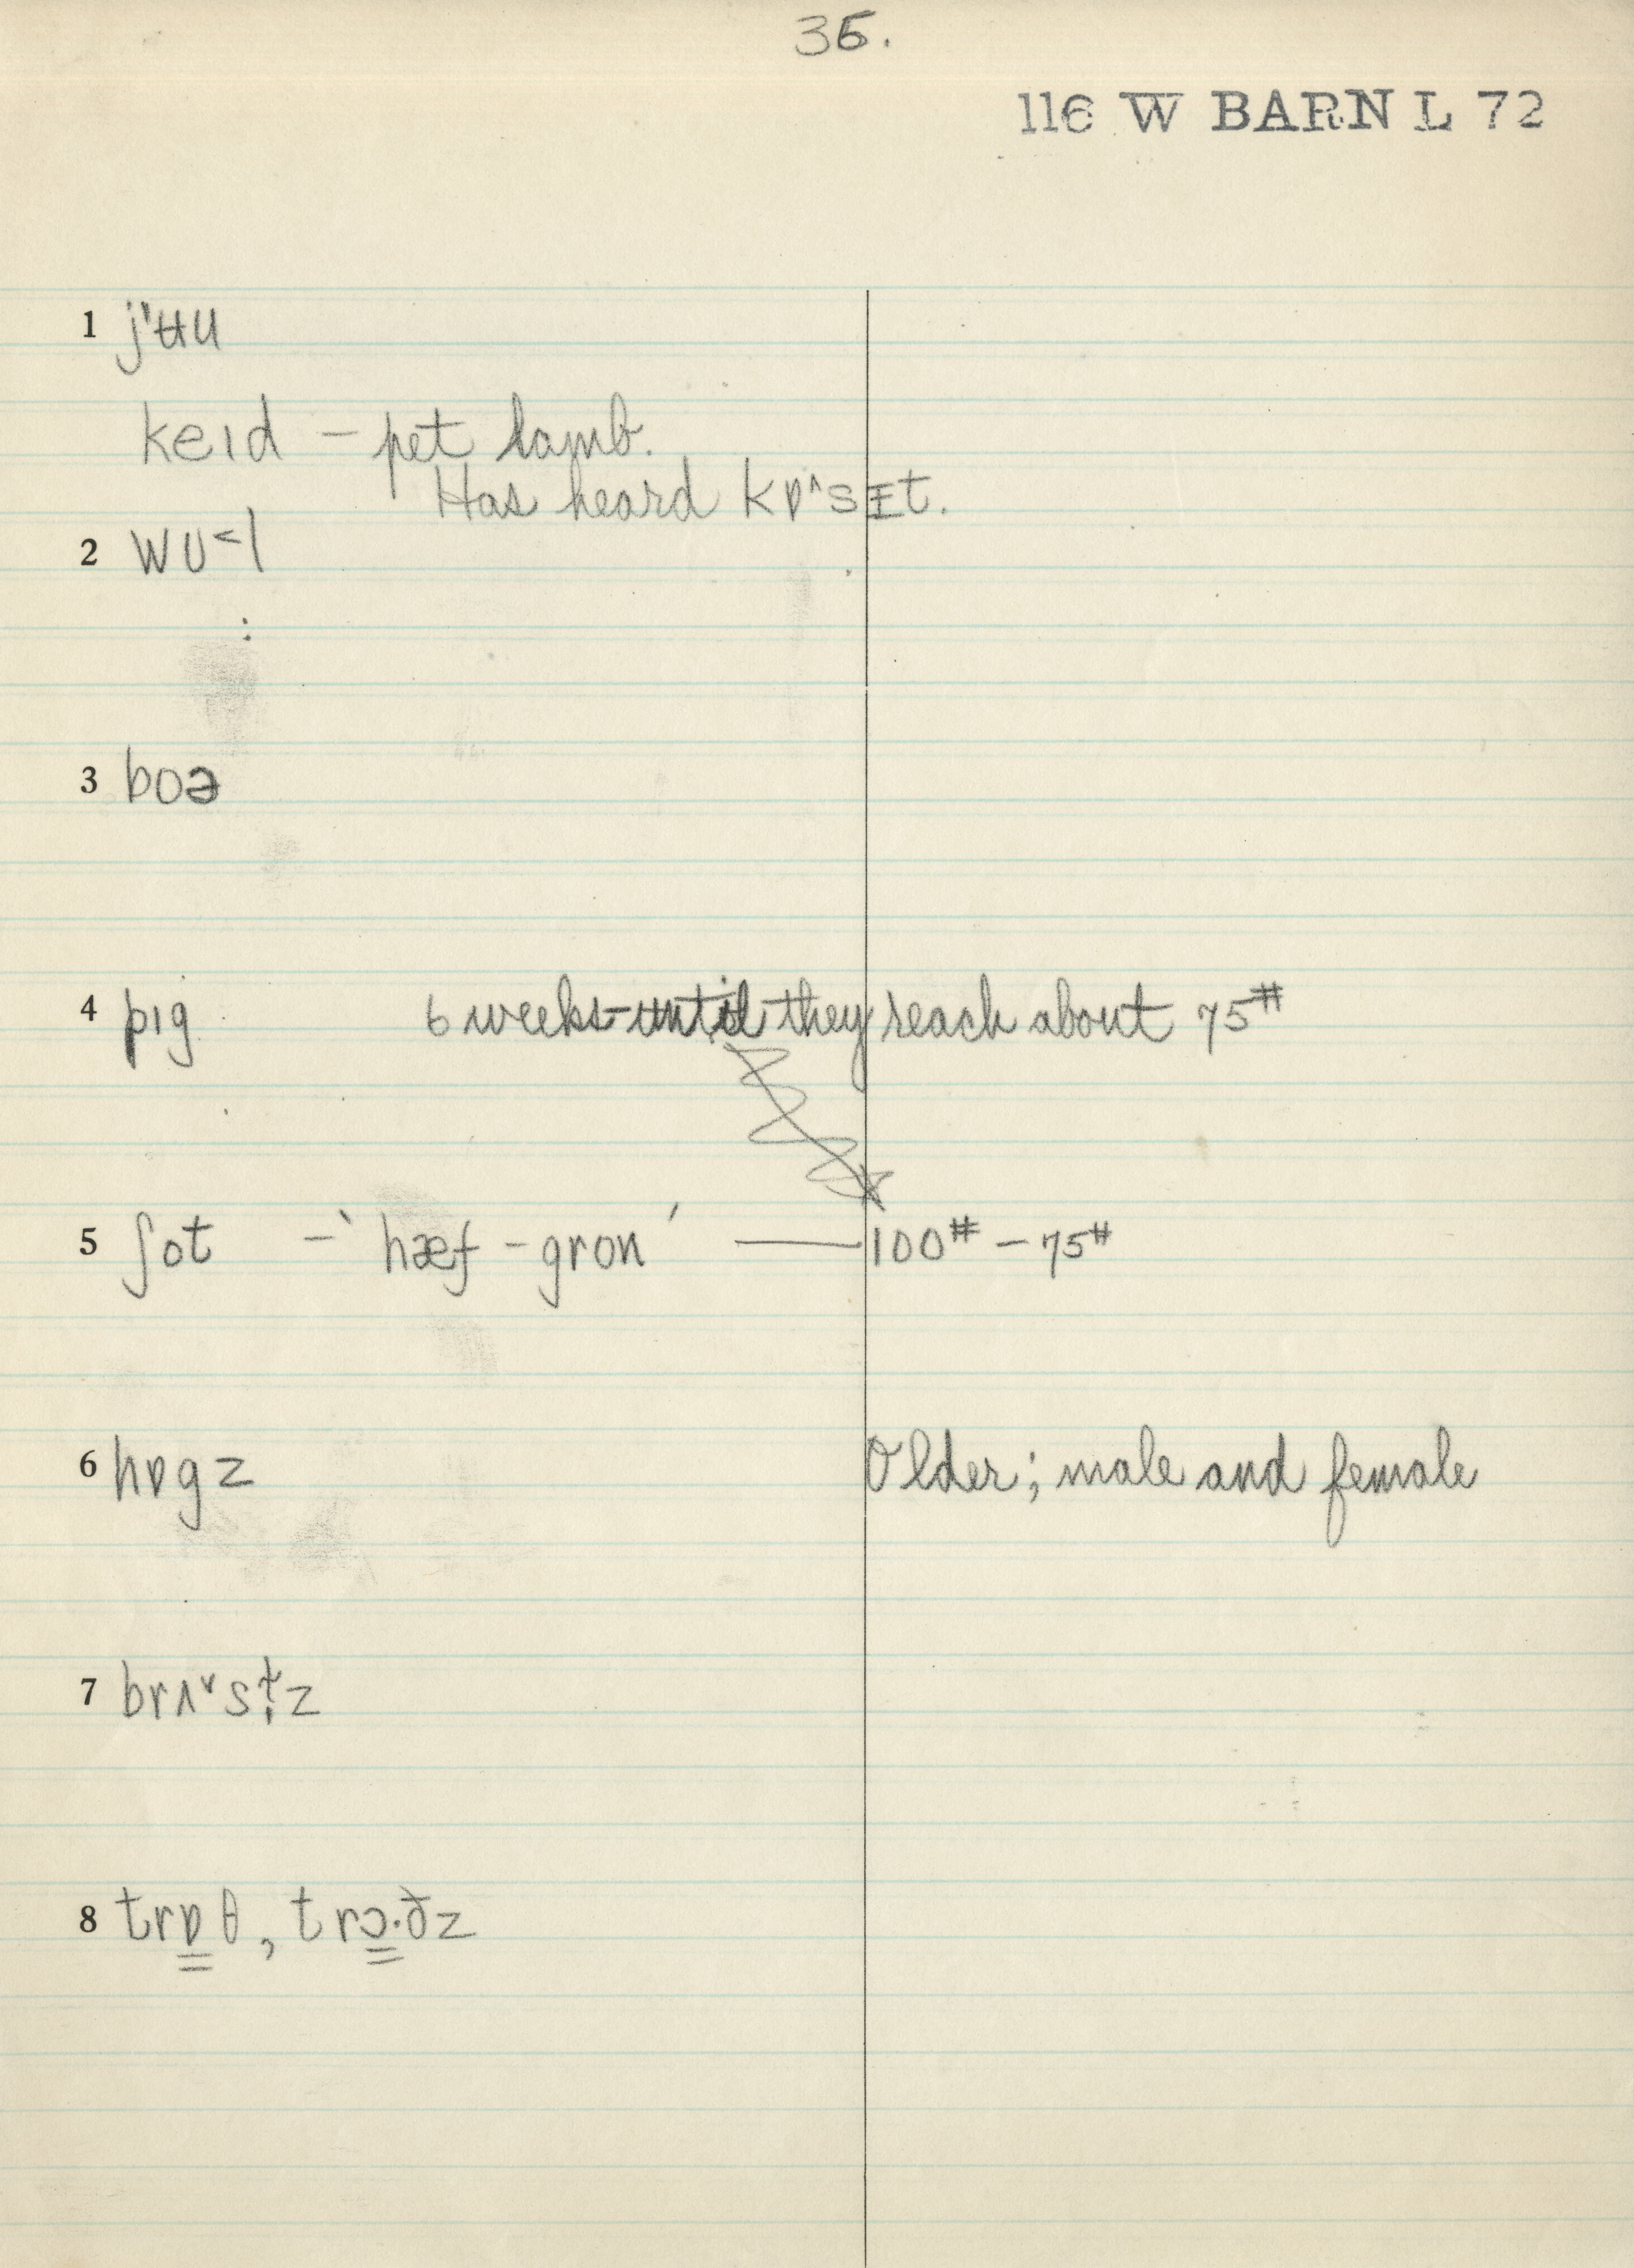 36.
116 W BARN L 72
1 jˈʉu
keɪd – pet lamb.
Has heard kɒ^sɪt.
2 wʊ<l
3 boə
4 pɪg 6 weeks–until they reach about 75#
5 ʃot –ˋhæf–gronˊ —— 100# – 75#
6 hɒgz Older; male and female
7 brʌ˅sɫ̩z
8 trɒ̳θ, trɔ̳·ðz